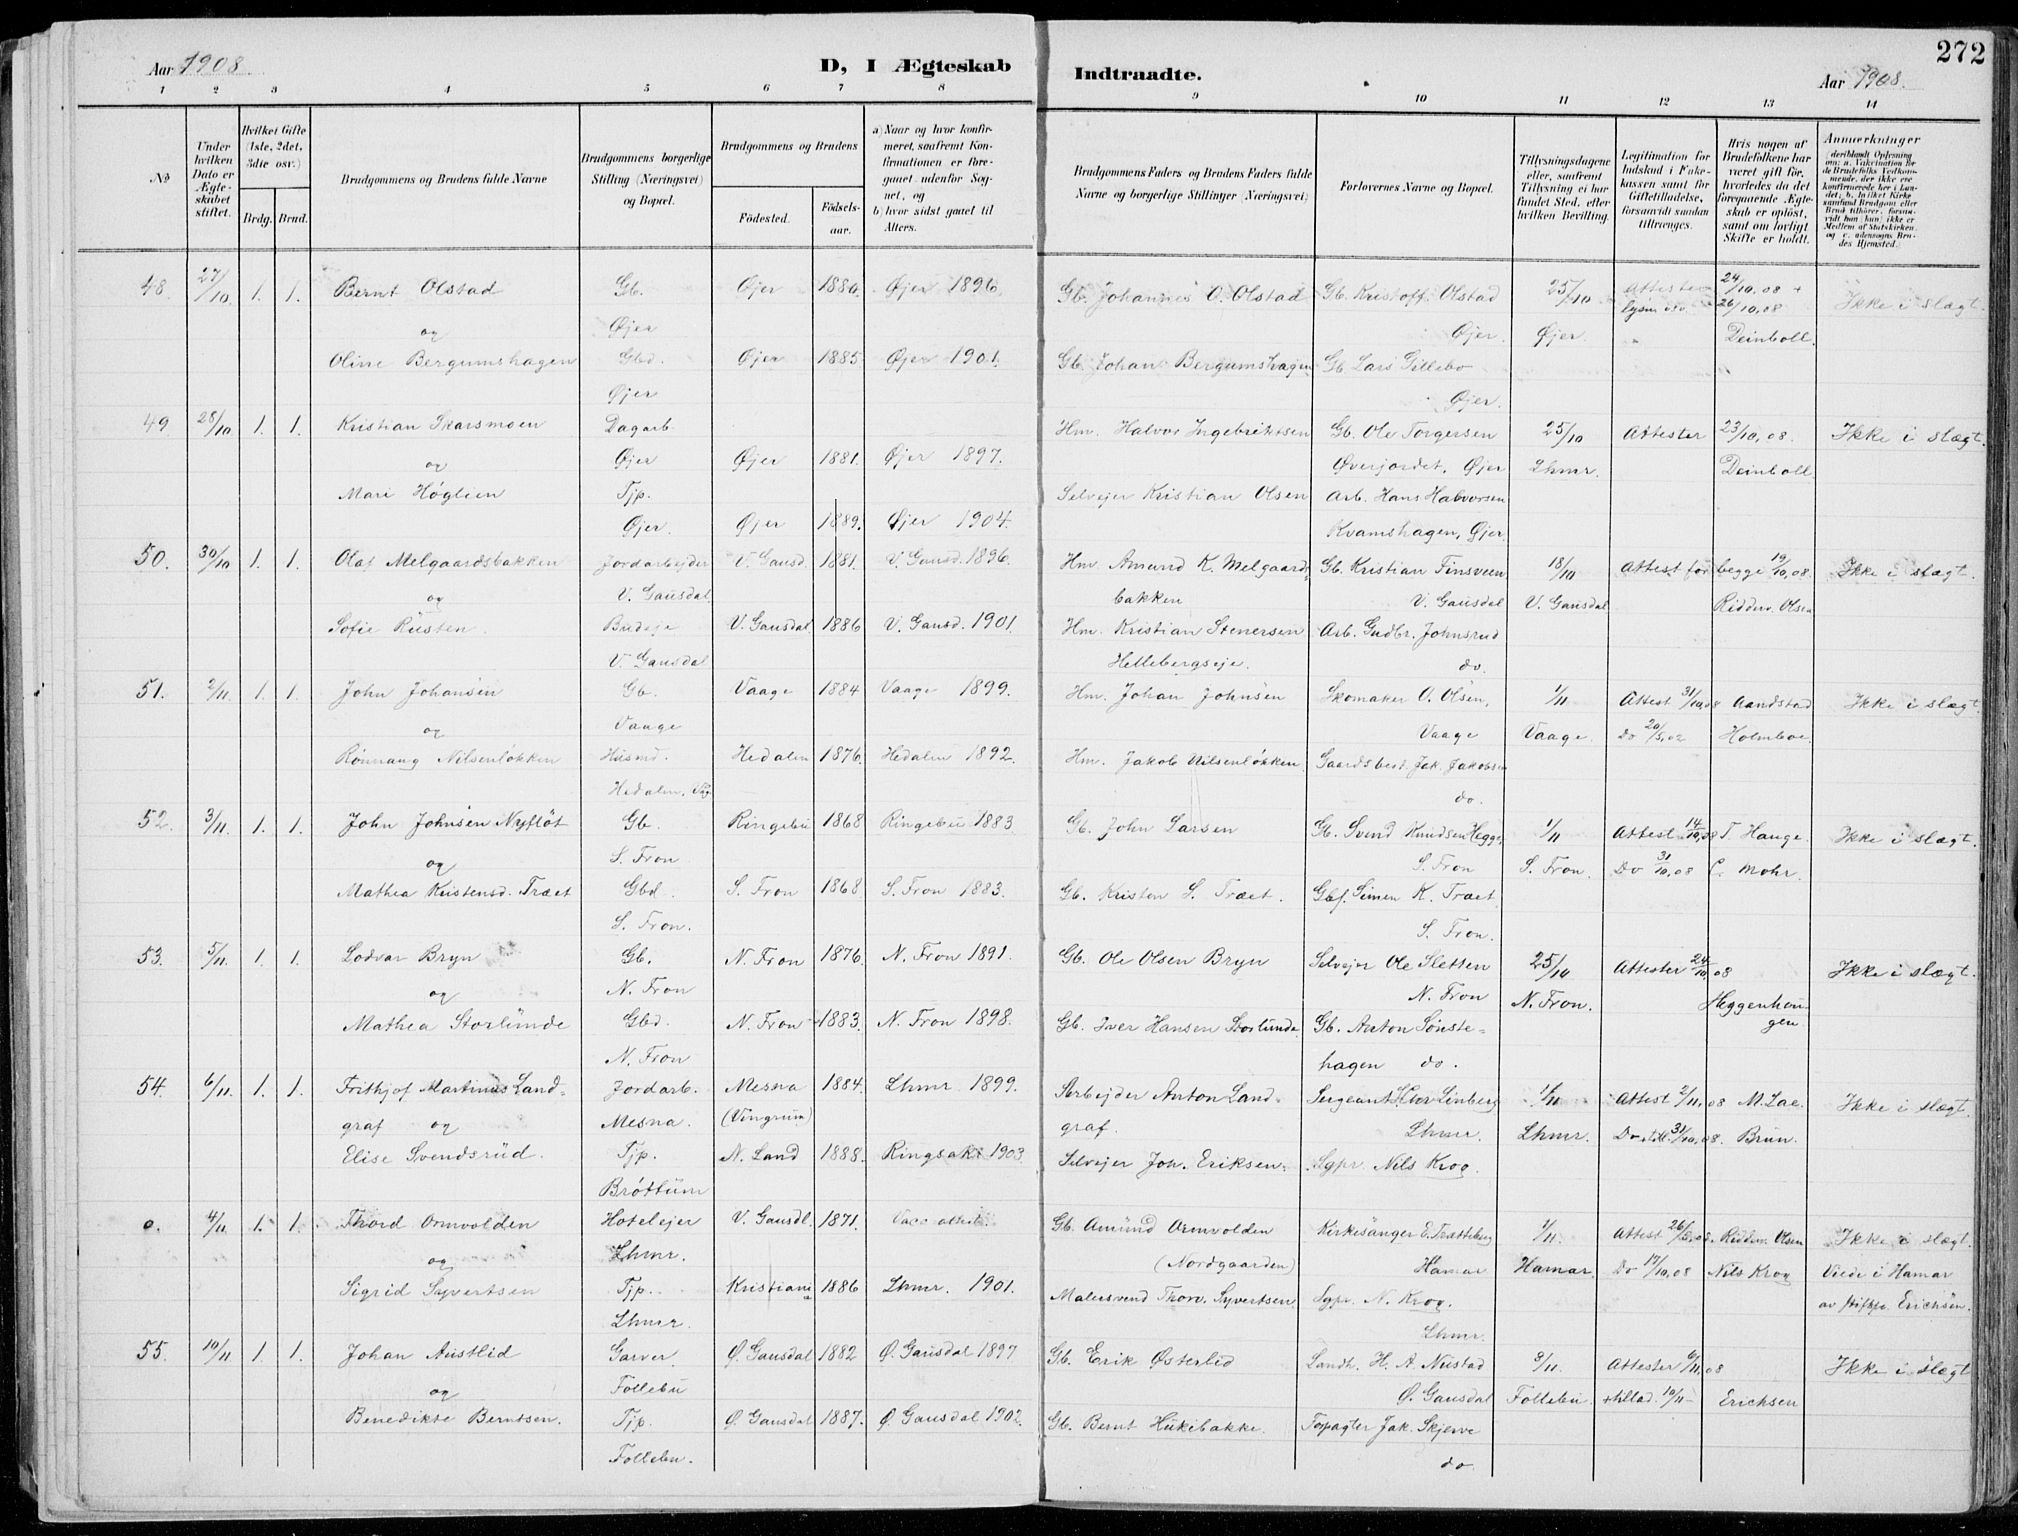 272
Aar 1908.
D, I Ægteskab
Indtraadte.
Aar 1908.
1 2 3 4 5 6 7 8 9 10 11 12 13 14
No
Under hvilken Dato er Ægteskabet stiftet.
Hvilket Gifte (1ste, 2det, 3die osv.)
Brdg. Brud.
Brudgommens og Brudens fulde Navne
Brudgommens borgerlige Stilling (Næringsvei) og Bopæl.
Brudgommens og Brudens
Fødested.
Fødsels-aar.
a) Naar og hvor konfirmeret, saafremt Konfirmationen er foregaaet udenfor Sognet, og
b) hvor sidst gaaet til Alters.
Brudgommens Faders og Brudens Faders fulde Navne og borgerlige Stillinger (Næringsvei)
Forlovernes Navne og Bopæl.
Tillysningsdagene eller, saafremt Tillysning ei har fundet Sted, efter hvilken Bevilling.
Legitimation for Indskud i Enkekassen samt for Giftetilladelse, forsaavidt saadan tiltrænges.
Hvis nogen af Brudefolkene har været gift før, hvorledes da det foregaaende Ægteskab er opløst, samt om lovligt Skifte er holdt.
Anmærkninger
48. 27/10 1. 1. Bernt Olstad Gb. Øjer 1880. Øjer 1896. Gb. Johannes O. Olstad Gb. Kristoff. Olstad 25/10 Attester 24/10,08 + Ikke i slægt.
og Øjer Øjer. Øjer. lysn. 26/10,08
Oline Bergumshagen Gbd. Øjer 1885 Øjer 1901. Gb. Johan Bergumshagen Gb. Lars Gillebo Deinboll.
Øjer Øjer.
49 28/10 1. 1. Kristian Skarsmoen Dagarb. Hm. Halvor Ingebriktsen Gb. Ole Torgersen 25/10 Attester 23/10,08. Ikke i slægt.
og Øjer Øjer 1881. Øjer 1897. Øverjordet, Øjer Lhmr. Deinboll
Mari Høglien Tjp. Selvejer Kristian Olsen Arb. Hans Halvorsen
Øjer. Øjer 1889. Øjer 1904. Kvamshagen, Øjer
50. 30/10 1. 1. Olaf Melgaardsbakken Jordarbejder V. Gausd. 1881. V. Gausd. 1896. Hm. Amund K. Melgaards- Gb. Kristian Finsveen 18/10 Attest for begge 19/10,08. Ikke i slægt.
og V. Gausdal bakken V. Gausdal V. Gausdal Ridderv. Olsen
Sofie Rusten. Budeje V. Gausdal 1886 V. Gausd. 1901. Hm. Kristian Stenersen Arb. Gudbr. Johnsrud
V. Gausdal Hellebergseje. do.
51. 2/11 1. 1. John Johansen Gb. Vaage 1884 Vaage 1899. Hm. Johan Johnsen Skomaker O. Olsen, 1/11 Attest 31/10,08 Aandstad Ikke i slægt.
og Vaage Vaage Vaage. Do 20/5,02 Holmboe.
Rønnaug Nilsenløkken Husmd. Hedalen 1876. Hedalen 1892. Hm. Jakob Nilsenløkken Gaardsbest. Jak. Jakobsen
Hedalen, Våg. do.
52. 3/11. 1. 1. John Johnsen Nyfløt Gb. Ringebu 1868 Ringebu 1883. Gb. John Larsen Gb. Svend Knudsen Hegge, 1/11 Attest 14/10,08 T. Hauge. Ikke i slægt.
og S. Fron S. Fron S. Fron. Do 31/10,08 C. Mohr.
Mathea Kristensd. Træet Gbd. S. Fron 1868 S. Fron 1883. Gb. Kristen S. Træet. Gbf. Simen K. Træet
S. Fron. S. Fron.
53. 5/11. 1. 1. Lodvar Bryn Gb. N. Fron 1876. N. Fron 1891. Gb. Ole Olsen Bryn Selvejer Ole Sletten 25/10 Attester 24/10 08 Ikke i slægt.
og N. Fron N. Fron N. Fron. Heggenhougen
Mathea Storlunde Gbd. N. Fron 1883. N. Fron 1898. Gb. Iver Hansen Storlunde Gb. Anton Sønste-
N. Fron hagen do.
54. 6/11. 1. 1. Frithjof Martinus Land- Jordarb. Mesna 1884. Lhmr 1899. Arbejder Anton Land- Sergeant Thor Linberg 1/11 Attest 2/11,08 M. Lae. Ikke i slægt.
graf og Mesna. (Vingrum) graf. Lhmr. Lhmr. Do till. 31/10,08. Brun.
Elise Svendsrud. Tjp. N. Land 1888. Ringsaker 1903. Selvejer Joh. Eriksen. Sgpr. Nils Krog.
Brøttum
o. 4/11. 1. 1. Thord Ormvolden Hotelejer V. Gausdl. 1871. Vacc. attest. Gb. Amund Ormvolden Kirkesanger E. Trætteberg 1/11. Attest 26/5,08. Riddrv. Olsen Ikke i slægt.
og Lhmr. (Nordgaarden) Hamar Hamar. Do 17/10,08 Nils Krog Viede i Hamar
Sigrid Syvertsen Tjp. Kristiania 1886 Lhmr. 1901. Malersvend Thorv. Syvertsen. Sgpr. N. Krog. av stiftspr. Erichsen.
Lhmr. Lhmr.
55. 10/11 1. 1. Johan Austlid Garver. Ø. Gausdal 1882 Ø. Gausdal 1897 Gb. Erik Østerlid Landh. H. A. Nustad 8/11. Attester 6/11,08 Ikke i slægt
og Follebu Ø. Gausdal Follebu tillad. 10/11 Erichsen
Benedikte Berntsen. Tjp. Ø. Gausdal 1887. Ø. Gausdal 1902. Gb. Bernt Hukibakke. Forpagter Jak. Skjerve
Follebu. do